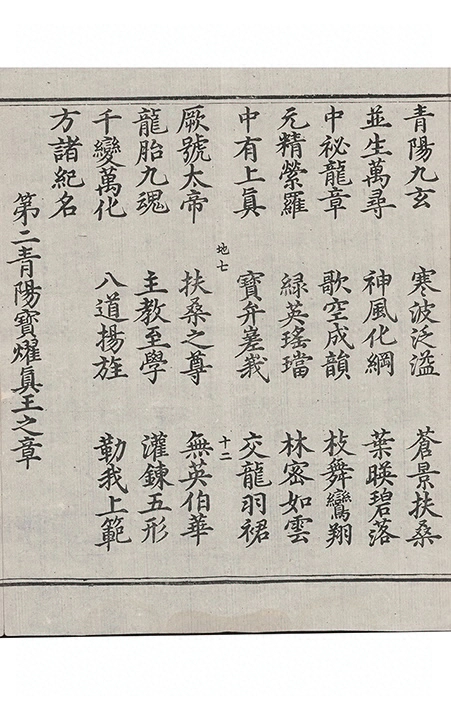 青陽九玄　寒波泛溢　蒼景扶桑
並生萬尋　神風化綱　葉暎碧落
中祕龍章　歌空成韻　枝舞鸞翔
元精縈羅　緑英瑤璫　林密如雲
中有上眞　寶弁嵳峩　交龍羽裙
地七　十二
厥號太帝　扶桑之尊　無英伯華
龍胎九魂　主教至學　灌鍊五形
千變萬化　八道揚旌　勒我上範
方諸紀名
第二青陽寶燿眞王之章